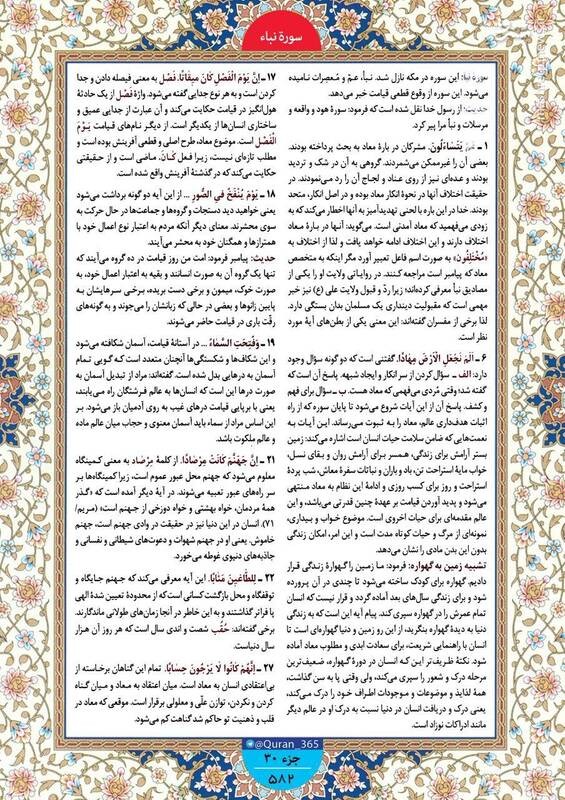 سورة نباء
سوره نبأ: این سوره در مکه نازل شد. نبـأ، عمّ و مُعصِرات نامیده
می‌شود. این سوره از وقوع قطعی قیامت خبر می‌دهد.
حدیث: از رسول خدا نقل شده است که فرمود: سورۀ هود و واقعه و
مرسلات و نبأ مرا پیر کرد.
۱ ـ عَمَّ یَتَساءَلُونَ. مشرکان در بارۀ معاد به بحث پرداخته بودند.
بعضی آن را غیرممکن می‌شمردند. گروهی به آن در شک و تردید
بودند و عده‌ای نیز از روی عناد و لجاج آن را رد می‌نمودند. در
حقیقت اختلاف آنها در نحوۀ انکار معاد بوده و در اصل انکار، متحد
بودند. خدا در این باره با لحنی تهدیدآمیز به آنها اخطار می‌کند که به
زودی می‌فهمید که معاد آمدنی است. می‌گوید: آنها در بارۀ معاد
اختلاف دارند و این اختلاف ادامه خواهد یافت و لذا از اختلاف به
«مُخْتَلِفُونَ» به صورت اسم فاعل تعبیر آورد مگر اینکه به متخصص
معاد که پیامبر است مراجعه کنند. در روایاتی ولایت او را یکی از
مصادیق نبأ معرفی کرده‌اند؛ زیرا ردّ و قبول ولایت علی (ع) نیز خبر
مهمی است که مقبولیت دینداری یک مسلمان بدان بستگی دارد.
لذا برخی از مفسران گفته‌اند: این معنی یکی از بطن‌های آیۀ مورد
نظر است.
۶ ـ اَلَمْ نَجْعَلِ الْاَرْضَ مِهَادًا. گفتنی است که دو گونه سؤال وجود
دارد: الف ـ سؤال کردن از سر انکار و ایجاد شبهه. پاسخ آن است که
گفته شد؛ وقتی مُردی می‌فهمی که معاد هست. ب ـ سؤال برای فهم
و کشف. پاسخ آن از این آیات شروع می‌شود تا پایان سوره که از راه
اثبات هدفداری عالم، معاد را به ثبوت می‌رساند. این آیات به
نعمت‌هایی که ضامن سلامت حیات انسان است اشاره می‌کند: زمین
بستر آرامش برای زندگی، همسر برای آرامش روان و بقای نسل،
خواب مایۀ استراحت تن، باد و باران و نباتات سفرۀ معاش، شب پردۀ
استراحت و روز برای کسب روزی و ادامۀ این نظام به معاد منتهی
می‌شود و پدید آوردن قیامت بر عهدۀ چنین قدرتی می‌باشد، و این
عالم مقدمه‌ای برای حیات اخروی است. موضوع خواب و بیداری،
نمونه‌ای از مرگ و حیات کوتاه مدت است و این امر، امکان زندگی
بدون این بدن مادی را نشان می‌دهد.
تشبیه زمین به گهواره: فرمود: ما زمین را گهوارۀ زندگی قرار
دادیم. گهواره برای کودک ساخته می‌شود تا چندی در آن پرورده
شود و برای زندگی سال‌های بعد آماده گردد و قرار نیست که انسان
تمام عمرش را در گهواره سپری کند. پیام آیه این است که به زندگی
دنیا به دیدۀ گهواره بنگرید، از این رو زمین و دنیا گهواره‌ای است تا
انسان با راهنمایی شریعت، برای سعادت ابدی و مطلوب معاد آماده
شود. نکتۀ ظریف‌تر این کـه انسان در دورۀ گهواره، ضعیف‌ترین
مرحله درک و شعور را سپری می‌کند، ولی وقتی پا به سن گذاشت،
همۀ لذایذ و موضوعات و موجودات اطراف خود را درک می‌کند،
یعنی درک و دریافت انسان در دنیا نسبت به درک او در عالم دیگر
مانند ادراکات نوزاد است.
۱۷ ـ اِنَّ یَوْمَ الْفَصْلِ کَانَ مِیقَاتًا. فَصْل به معنی فیصله دادن و جدا
کردن است و به هر نوع جدایی گفته می‌شود. واژۀ فَصْل از یک حادثۀ
هول‌انگیز در قیامت حکایت می‌کند و آن عبارت از جدایی عمیق و
ساختاری انسان‌ها از یکدیگر است. از دیگر نام‌های قیامت یَـوْمَ
الْفَصْلِ است. موضوع معاد، طرح اصلی و قطعی آفرینش بوده است و
مطلب تازه‌ای نیست، زیرا فعل کَـانَ، ماضی است و از حقیقتی
حکایت می‌کند که در گذشتۀ آفرینش واقع شده است.
۱۸ ـ یَوْمَ یُنْفَخُ فِی الصُّورِ ... از این آیه دو گونه برداشت می‌شود
یعنی خواهید دید دستجات و گروه‌ها و جماعت‌ها در حال حرکت به
سوی محشرند. معنای دیگر آنکه مردم به اعتبار نوع اعمال خود با
همترازها و همگنان خود به محشر می‌آیند.
حدیث: پیامبر فرمود: امت من روز قیامت در ده گروه می‌آیند که
تنها یک گروه آن به صورت انسانند و بقیه به اعتبار اعمال خود، به
صورت خوک، میمون و برخی دست بریده، برخی سرهایشان به
پایین زانوها و بعضی در حالی که زبانشان را می‌جوند و به گونه‌های
رقّت باری در قیامت حاضر می‌شوند.
۱۹ ـ وَفُتِحَتِ السَّمَاءُ ... در آستانۀ قیامت، آسمان شکافته می‌شود
و این شکاف‌ها و شکستگی‌ها آنچنان متعدد است کـه گویی تمام
آسمان به درهایی بدل شده است. گفته‌اند: مراد از تبدیل آسمان به
صورت درها این است که انسان‌ها به عالم فرشتگان راه می‌یابند،
یعنی با برپایی قیامت درهای غیب به روی آدمیان باز می‌شود. بر
این اساس مراد از سماء باید آسمان معنوی و حجاب میان عالم ماده
و عالم ملکوت باشد.
۲۱ ـ اِنَّ جَهَنَّمَ کَانَتْ مِرْصَادًا. از کلمۀ مِرْصَاد به معنی کمینگاه
معلوم می‌شود که جهنم محل عبور عموم است، زیرا کمینگاه‌ها بر
سر راه‌های عبور تعبیه می‌شوند. در آیۀ دیگر آمده است که «گـذر
همۀ مردمان، خواه بهشتی و خواه دوزخی از جهنم است» (مریم/
۷۱). انسان در این دنیا نیز در حقیقت در وادی جهنم است، جهنم
خاموش. یعنی او در جهنم شهوات و دعوت‌های شیطانی و نفسانی و
جاذبه‌های دنیوی غوطه می‌خورد.
۲۲ ـ لِلطَّاغینَ مَـٰابًا. این آیه معرفی می‌کند که جهنم جایگاه و
توقفگاه و محل بازگشت کسانی است که از محدودۀ تعیین شدۀ الهی
پا فراتر گذاشتند و به این خاطر در آنجا زمان‌های طولانی ماندگارند.
برخی گفته‌اند: حُقُب شصت و اندی سال است که هر روز آن هزار
سال دنیاست.
۲۷ ـ اِنَّهُمْ کَانُوا لَا یَرْجُونَ حِسَابًا. تمام این گناهان برخاسته از
بی‌اعتقادی انسان به معاد است. میان اعتقاد به معـاد و میـان گنـاه
کردن و نکردن، توازن علّی و معلولی برقرار است. موقعی که معاد در
قلب و ذهنیت تو حاکم شد گناهت کم می‌شود.
@Quran_365
جزء ۳۰
۵۸۲